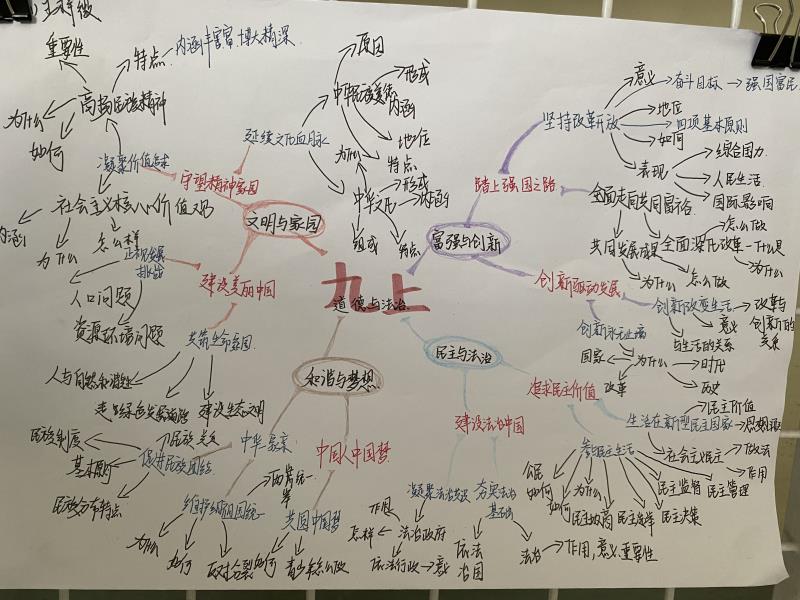 重要性
特点
内涵丰富.博大精深
高扬民族精神
为什么
如何
凝聚价值追求
守望精神家园
延续文化血脉
中华民族美德
原因
形成
内涵
地位
特点
为什么
中华文化
形成
组成
特点
社会主义核心价值观
内涵
为什么
怎么样
文明与家园
正视发展
挑战
建设美丽中国
人口问题
资源环境问题
共筑生命家园
人与自然和谐共生
建设生态文明
九上
道德与法治
富强与创新
踏上强国之路
坚持改革开放
意义
奋斗目标
强国富民
地位
四项基本原则
如何
表现
综合国力
人民生活
国际影响
全面走向共同富裕
共同发展成果
全面深化改革
怎么做
什么是
为什么
为什么
怎么做
创新驱动发展
创新改变生活
改革与
创新的
关系
意义
与生活的关系
创新永无止境
国家
为什么
时代
历史
改革
民主与法治
追求民主价值
生活在新型民主国家
民主价值
社会主义民主
做法
作用
参与民主生活
公民
如何
如何
为什么
民主选举
民主决策
民主监督
民主管理
建设法治中国
凝聚法治共识
夯实法治
基础
作用
怎样
法治政府
依法行政
意义
依法
治国
法治
作用,意义.重要性
和谐与梦想
中华一家亲
中国人中国梦
民族制度
民族关系
基本原则
促进民族团结
民族分布特点
维护祖国统一
为什么
如何
反对分裂
两岸统一
共圆中国梦
如何
青少年怎么做